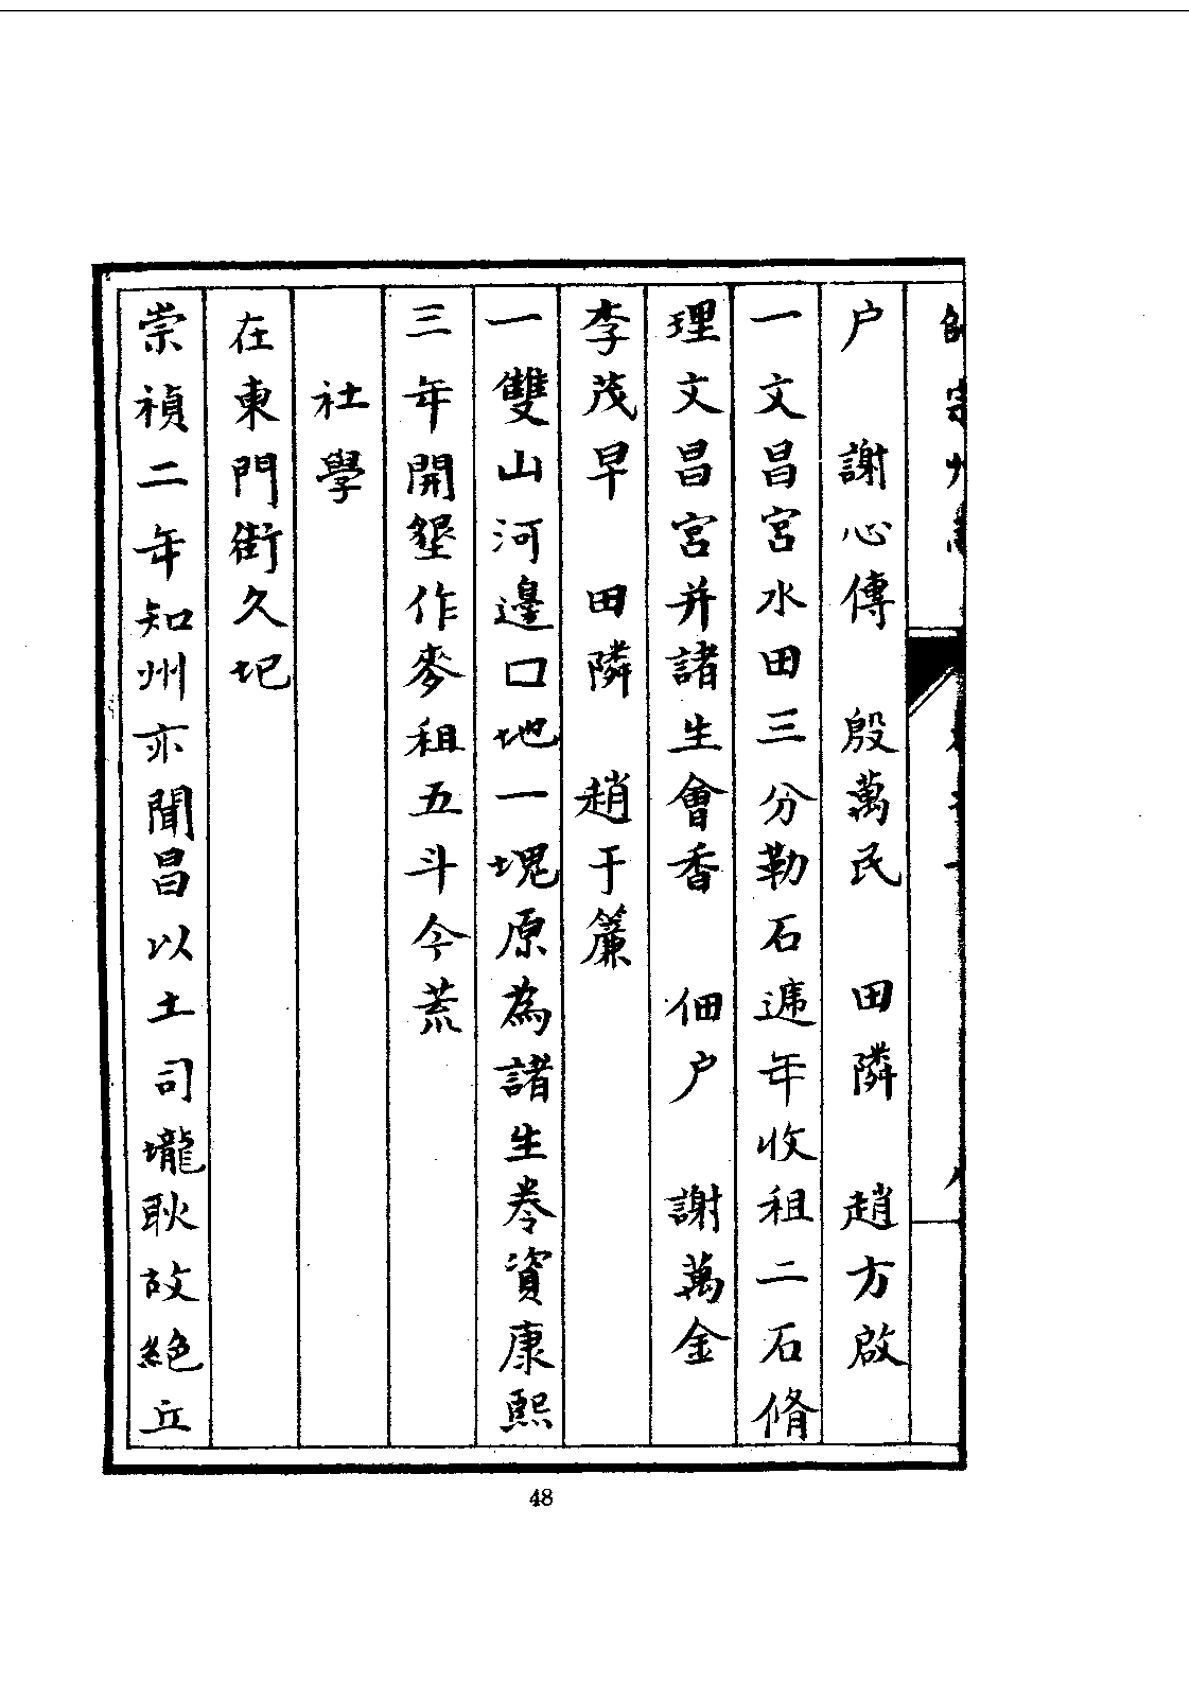 户　謝心傳　殷萬民　田隣　趙方啟
一文昌宮水田三分勒石遞年收租二石脩
理文昌宮并諸生會香　佃户　謝萬金
李茂早　田隣　趙于簾
一雙山河邊口地一塊原為諸生卷資康熙
三年開墾作麥租五斗今荒
社學
在東門街久圯
崇禎二年知州亦聞昌以土司壠耿故絕丘
48